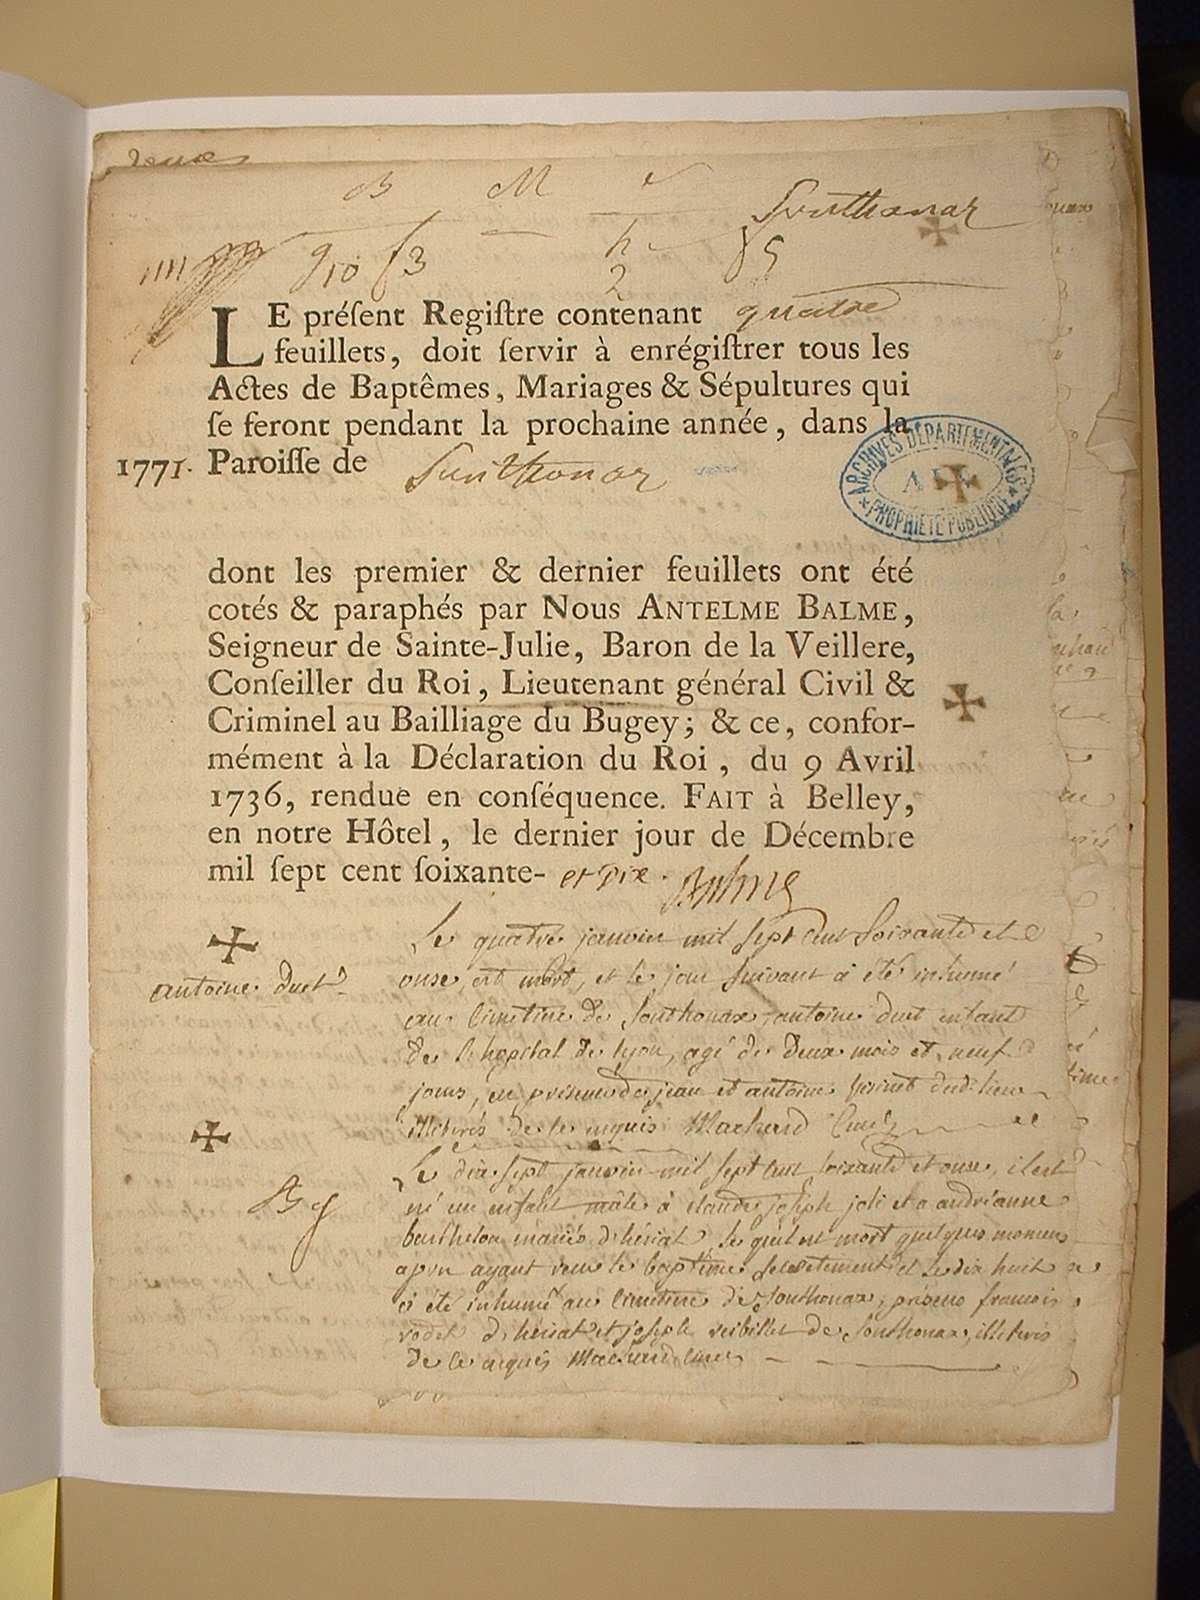 B M
Sonthonax
9 10 3 2 5
LE préſent Regiſtre contenant quatre
feuillets, doit ſervir à enrégiſtrer tous les
Actes de Baptêmes, Mariages & Sépultures qui
ſe feront pendant la prochaine année, dans la
1771. Paroiſſe de Sonthonax
ARCHIVES DÉPARTEMENTALES
AIN
PROPRIÉTÉ PUBLIQUE
dont les premier & dernier feuillets ont été
cotés & paraphés par Nous ANTELME BALME,
Seigneur de Sainte-Julie, Baron de la Veillere,
Conſeiller du Roi, Lieutenant général Civil &
Criminel au Bailliage du Bugey; & ce, confor-
mément à la Déclaration du Roi, du 9 Avril
1736, rendue en conſéquence. FAIT à Belley,
en notre Hôtel, le dernier jour de Décembre
mil ſept cent ſoixante- et dix. Balme
Le quatre janvier mil sept cent soixante et
antoine duct
onse, est mort, et le jour suivant a été inhumé
au cimetiere de Sonthonax, antoine duct enfant
de l'hopital de lyon, agé de deux mois et neuf
jours, en presence de jean et antoine dud. lieu
illiterés de ce enquis Machurd Curé
Le dix sept janvier mil sept cent soixante et onse, il est
né un enfant mâle à claude joseph joli et a andrianne
barthelon mariés d'hériat le quel est mort quelques momens
apres ayant reçu le baptême et le dix huit
a été inhumé au cimetiere de Sonthonax, présens francois
rodet d'hériat et joseph de Sonthonax, illiterés
de ce enquis Machurd curé